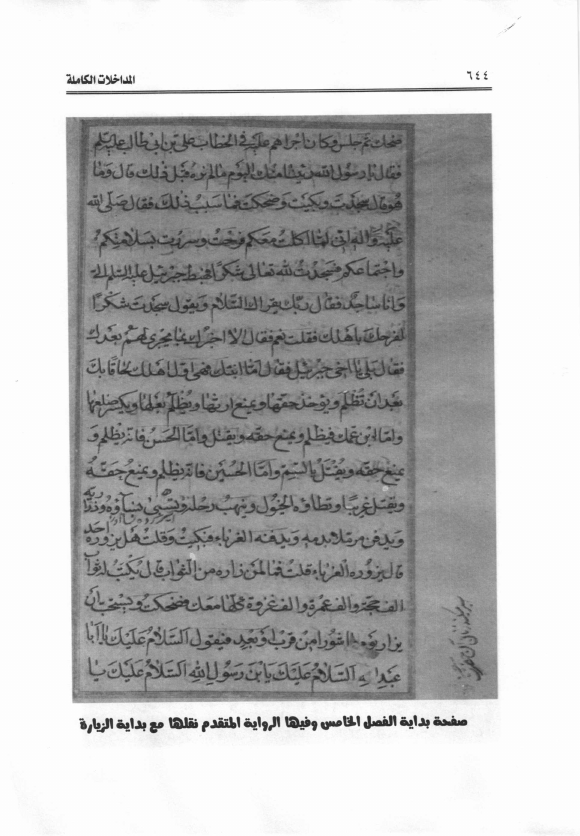 ٦٤٤
المداخلات الكاملة
ضحك ثم جلس وكان اجراهم عليه في الخطاب علي بن ابي طالب عليه السلم
فقال يا رسول الله منك اليوم مالم نره قبل ذلك قال وما
هو قال سجدت وبكيت وضحكت فما سبب ذلك فقال صلى الله
عليه واله اني لما اكلت معكم فرحت وسررت بسلامتكم
واجتماعكم فسجدت لله تعالى شكرا فهبط جبرئيل عليه السلم الي
وانا ساجد فقال ربك يقرأك السلام ويقول سجدت شكرا
لفرحك باهلك فقلت نعم فقال الا اخبرك بما يجري لهم بعدك
فقال بلى يا اخي جبرئيل فقال اما ابنتك فهي اول اهلك لحاقا بك
بعد ان تظلم ويؤخذ حقها ويمنع ارثها ويظلم بعلها ويكسر ضلعها
واما ابن عمك فيظلم ويمنع حقه ويقتل واما الحسن فانه يظلم و
يمنع حقه ويقتل بالسم واما الحسين فانه يظلم ويمنع حقه
ويقتل غريبا وتطاؤه الخيول وينهب رحله وتسبى نساؤه
ويدفن مرملا بدمه ويدفنه الغرباء فبكيت وقلت هل يزوره احد
قال يزوره الغرباء قلت فما لمن زاره من الثواب قال يكتب له ثواب
الف حجة والف عمرة والف غزوة كلها معك فضحكت ويستحب ان
يزار يوم عاشورا من قرب او بعد فيقول السلام عليك يا ابا
عبد الله السلام عليك يا بن رسول الله السلام عليك يا
صفحة بداية الفصل الخامس وفيها الرواية المتقدم نقلها مع بداية الزيارة